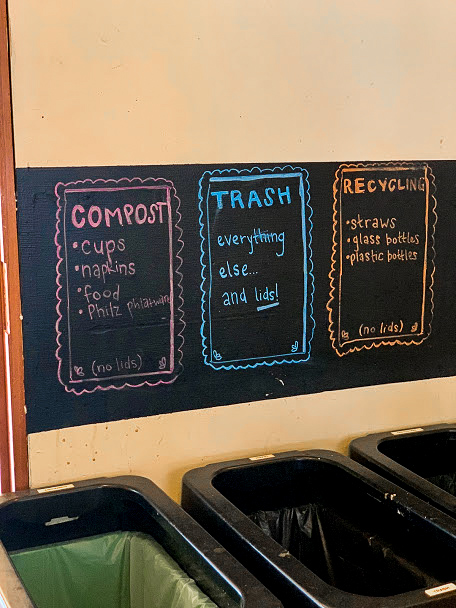 COMPOST
•cups
•napkins
•food
•Philz phlatware
(no lids)
TRASH
everything
else...
and lids!
RECYCLING
•straws
•glass bottles
•plastic bottles
(no lids)